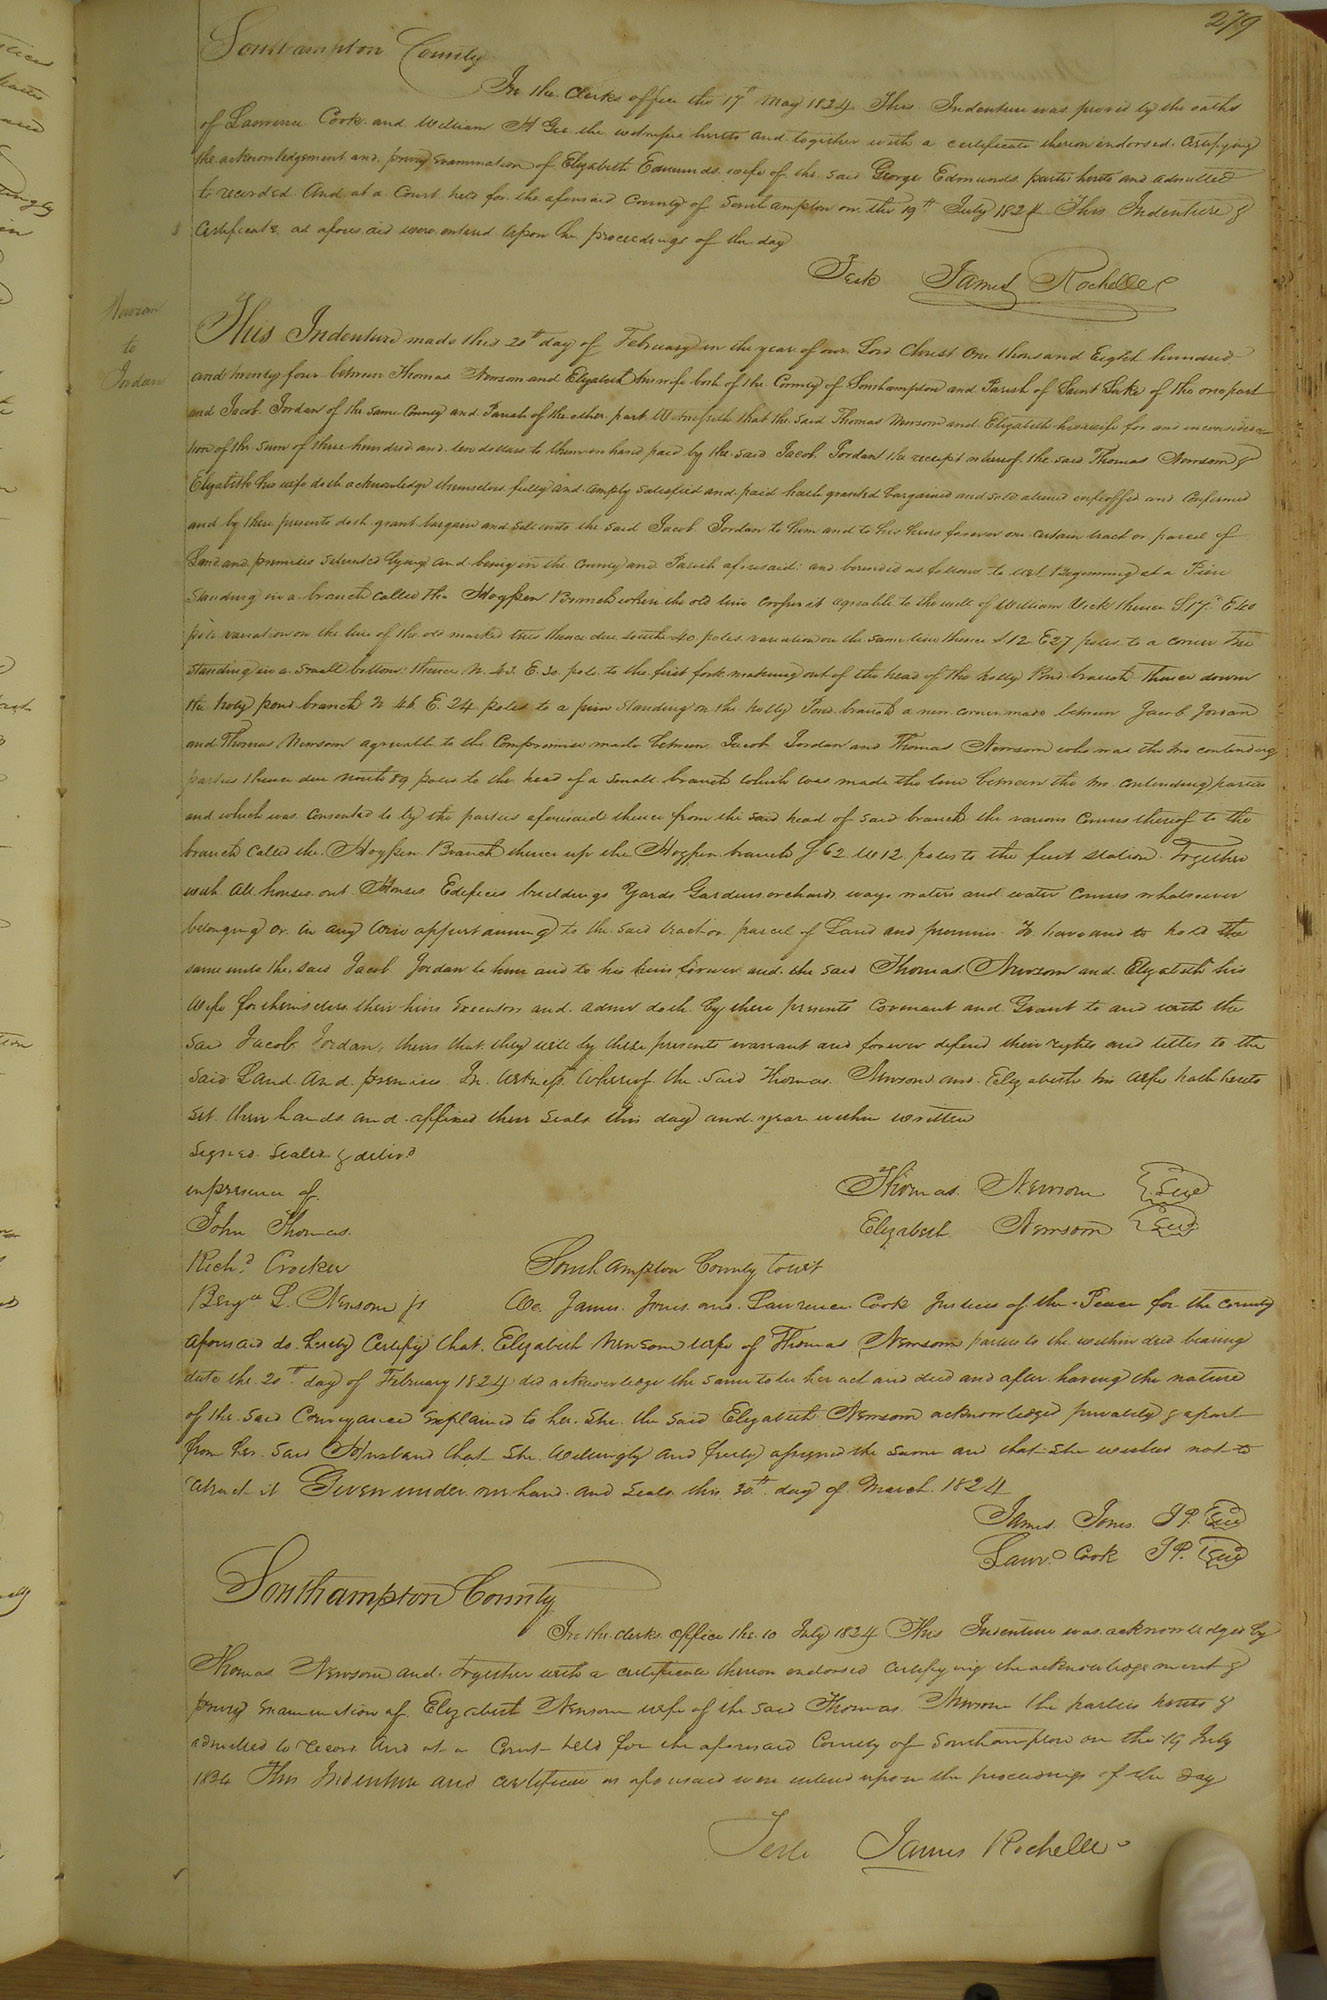 279
Southampton County
In the Clerks office the 17th May 1824 This Indenture was proved by the oaths
of Lawrence Cook and William H Gee the witnesses hereto and together with a certificate thereon endorsed Certifying
the acknowledgement and privy examination of Elizabeth Edmunds wife of the said George Edmunds parties hereto and admitted
to record And at a Court held for the aforesaid County of Southampton on the 19th July 1824 This Indenture &
Certificate as aforesaid were entered upon the proceedings of the day
Teste James Rochelle
Newsom
to
Jordan
This Indenture made this 20th day of February in the year of our Lord Christ One thousand Eight hundred
and twenty four between Thomas Newsom and Elizabeth his wife both of the County of Southampton and Parish of Saint Luke of the one part
and Jacob Jordan of the same County and Parish of the other part Witnesseth that the said Thomas Newsom and Elizabeth his wife for and in considera
tion of the sum of three hundred and two dollars to them in hand paid by the said Jacob Jordan the receipt whereof the said Thomas Newsom &
Elizabeth his wife doth acknowledge themselves fully and amply satisfied and paid hath granted bargained and sold and confirmed
and by these presents doth grant bargain and sell unto the said Jacob Jordan to him and to his heirs forever one certain tract or parcel of
Land and premises situated lying and being in the County and Parish aforesaid and bounded as follows to wit Beginning at a Pine
standing in a branch called the Hogpen Branch where the old line crosses it agreable to the will of William Vick thence S 17 E 40
pole variation on the line of the old marked trees thence due south 40 poles variation on the same line thence S 12 E 27 poles to a corner tree
standing in a small bottom thence N. 43 E. 30 pole to the first fork making out of the head of the holly Pond branch Thence down
the holy pond branch N 46 E. 24 poles to a pine standing on the holly Pond branch a new corner made between Jacob Jordan
and Thomas Newsom agreeable to the Compromise made between Jacob Jordan and Thomas Newsom who was the two contending
parties thence due north 89 poles to the head of a small branch which was made the line between the two contending parties
and which was consented to by the parties aforesaid thence from the said head of said branch the various courses thereof to the
branch called the Hogpen Branch thence up the Hogpen branch S 62 W 12 poles to the first station Together
with all houses out Houses Edifices buildings Yards Gardens orchards ways waters and water courses whatsoever
belonging or in any wise appertaining to the said tract or parcel of Land and premises To have and to hold the
same unto the said Jacob Jordan to him and to his heirs forever and the said Thomas Newsom and Elizabeth his
Wife for themselves their heirs Executors and admrs doth by these presents Covenant and Grant to and with the
said Jacob Jordan, theirs that they will by these presents warrant and forever defend their rights and titles to the
said Land and premises In Witness Whereof the said Thomas Newsom and Elizabeth his wife hath hereto
set their hands and affixed their seals this day and year within written
Signed Sealed & delivd
in presence of
Thomas Newsom Seal
John Thomas
Elizabeth Newsom Seal
Richd Crocker
Southampton County towit
Benjn L. Newsom jr
We James Jones and Lawrence Cook Justices of the Peace for the County
aforesaid do hereby Certify that Elizabeth Newsom wife of Thomas Newsom parties to the within deed bearing
date the 20th day of February 1824 did acknowledge the same to be her act and deed and after having the nature
of the said Conveyance explained to her She the said Elizabeth Newsom acknowledged privately & apart
from her said Husband that she willingly and freely assigned the same and that she wishes not to
retract it Given under our hand and seals this 30th day of March 1824
James Jones JP. Seal
Lawr. Cook JP. Seal
Southampton County
In the clerks office the 10 July 1824 This Indenture was acknowledged by
Thomas Newsom and together with a certificate thereon endorsed certifying the acknowledgement &
privy examination of Elizabeth Newsom wife of the said Thomas Newsom the parties hereto &
admitted to record And at a Court held for the aforesaid County of Southampton on the 19 July
1824 This Indenture and certificate as aforesaid were entered upon the proceedings of the day
Teste James Rochelle